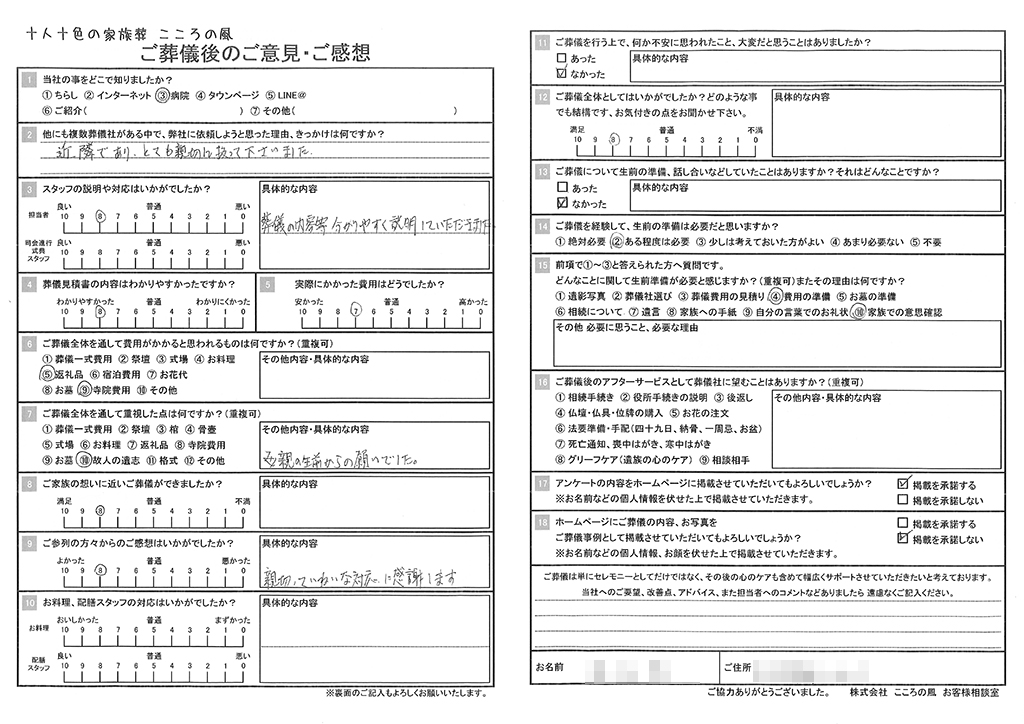 十人十色の家族葬 こころの風
ご葬儀後のご意見・ご感想
1 当社の事をどこで知りましたか?
①ちらし ②インターネット ③病院 ④タウンページ ⑤LINE@
⑥ご紹介( ) ⑦その他( )
2 他にも複数葬儀社がある中で、弊社に依頼しようと思った理由、きっかけは何ですか?
近隣であり、とても親切に扱って下さいました。
3 スタッフの説明や対応はいかがでしたか?
具体的な内容
良い 普通 悪い
担当者 10 9 8 7 6 5 4 3 2 1 0
葬儀の内容等 分かりやすく説明していただきました
司会進行
式員
スタッフ
良い 普通 悪い
10 9 8 7 6 5 4 3 2 1 0
4 葬儀見積書の内容はわかりやすかったですか?
わかりやすかった 普通 わかりにくかった
10 9 8 7 6 5 4 3 2 1 0
5 実際にかかった費用はどうでしたか?
安かった 普通 高かった
10 9 8 7 6 5 4 3 2 1 0
6 ご葬儀全体を通して費用がかかると思われるものは何ですか?(重複可)
①葬儀一式費用 ②祭壇 ③式場 ④お料理
⑤返礼品 ⑥宿泊費用 ⑦お花代
⑧お墓 ⑨寺院費用 ⑩その他
その他内容・具体的な内容
7 ご葬儀全体を通して重視した点は何ですか?(重複可)
①葬儀一式費用 ②祭壇 ③棺 ④骨壷
⑤式場 ⑥お料理 ⑦返礼品 ⑧寺院費用
⑨お墓 ⑩故人の遺志 ⑪格式 ⑫その他
その他内容・具体的な内容
父親の生前からの願いでした。
8 ご家族の想いに近いご葬儀ができましたか?
満足 普通 不満
10 9 8 7 6 5 4 3 2 1 0
具体的な内容
9 ご参列の方々からのご感想はいかがでしたか?
よかった 普通 悪かった
10 9 8 7 6 5 4 3 2 1 0
具体的な内容
親切、ていねいな対応に感謝します
10 お料理、配膳スタッフの対応はいかがでしたか?
おいしかった 普通 まずかった
お料理 10 9 8 7 6 5 4 3 2 1 0
配膳
スタッフ
良い 普通 悪い
10 9 8 7 6 5 4 3 2 1 0
具体的な内容
※裏面のご記入もよろしくお願いいたします。
11 ご葬儀を行う上で、何か不安に思われたこと、大変だと思うことはありましたか?
あった
なかった
具体的な内容
12 ご葬儀全体としてはいかがでしたか?どのような事
でも結構です、お気付きの点をお聞かせ下さい。
満足 普通 不満
10 9 8 7 6 5 4 3 2 1 0
具体的な内容
13 ご葬儀について生前の準備、話し合いなどしていたことはありますか?それはどんなことですか?
あった
なかった
具体的な内容
14 ご葬儀を経験して、生前の準備は必要だと思いますか?
①絶対必要 ②ある程度は必要 ③少しは考えておいた方がよい ④あまり必要ない ⑤不要
15 前項で①～③と答えられた方へ質問です。
どんなことに関して生前準備が必要と感じますか?(重複可)またその理由は何ですか?
①遺影写真 ②葬儀社選び ③葬儀費用の見積り ④費用の準備 ⑤お墓の準備
⑥相続について ⑦遺言 ⑧家族への手紙 ⑨自分の言葉でのお礼状 ⑩家族での意思確認
その他 必要に思うこと、必要な理由
16 ご葬儀後のアフターサービスとして葬儀社に望むことはありますか?(重複可)
①相続手続き ②役所手続きの説明 ③後返し
④仏壇・仏具・位牌の購入 ⑤お花の注文
⑥法要準備・手配(四十九日、納骨、一周忌、お盆)
⑦死亡通知、喪中はがき、寒中はがき
⑧グリーフケア(遺族の心のケア) ⑨相談相手
その他内容・具体的な内容
17 アンケートの内容をホームページに掲載させていただいてもよろしいでしょうか?
※お名前などの個人情報を伏せた上で掲載させていただきます。
掲載を承諾する
掲載を承諾しない
18 ホームページにご葬儀の内容、お写真を
ご葬儀事例として掲載させていただいてもよろしいでしょうか?
※お名前などの個人情報、お顔を伏せた上で掲載させていただきます。
掲載を承諾する
掲載を承諾しない
ご葬儀は単にセレモニーとしてだけではなく、その後の心のケアも含めて幅広くサポートさせていただきたいと考えております。
当社へのご要望、改善点、アドバイス、また担当者へのコメントなどありましたら 遠慮なくご記入ください。
お名前
ご住所
ご協力ありがとうございました。 株式会社 こころの風 お客様相談室